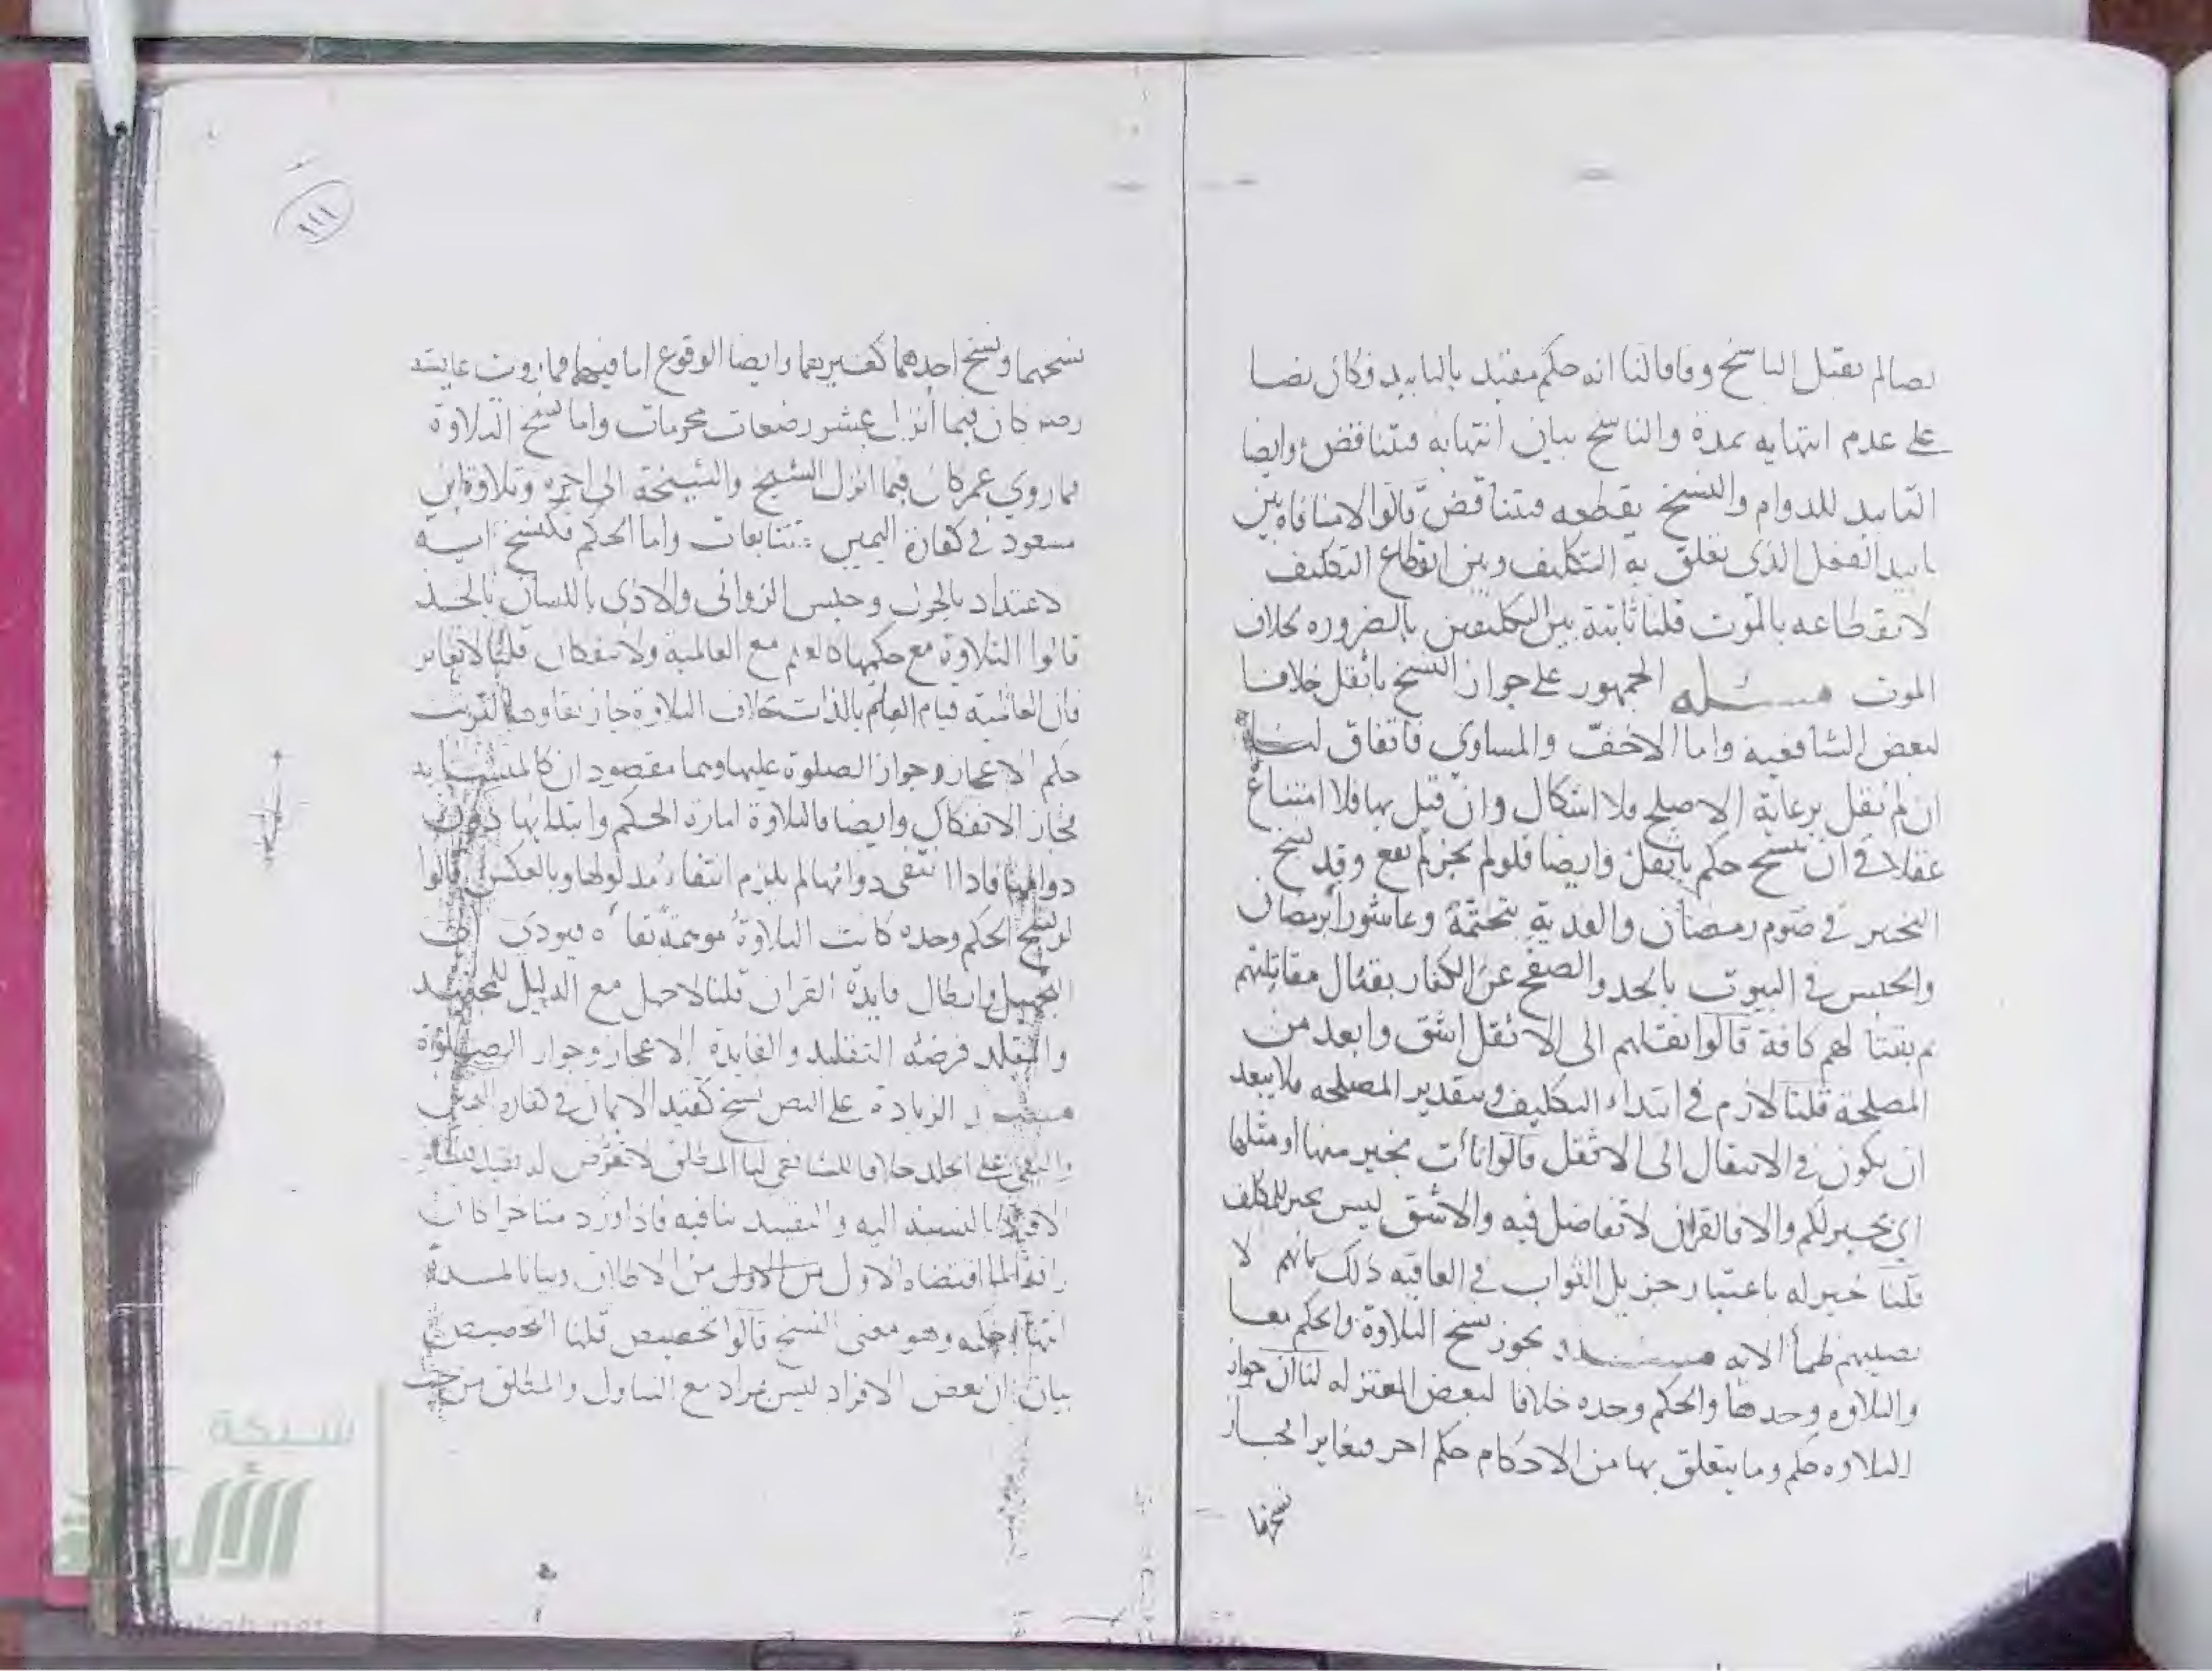 نصا لم يقبل الناسخ وفاقا لنا انه حكم مقيد بالتابيد فكان نصا
على عدم انتهايه بمدة والناسخ بيان انتهايه فتناقض وايضا
التابيد للدوام والنسخ يقطعه فتناقض قالوا لا منافاة بين
تابيد الفعل الذى تعلق به التكليف وبين انقطاع التكليف
لانقطاعه بالموت قلنا ثابتة بين التكليفين بالضروره بخلاف
الموت مسئله الجمهور على جواز النسخ باثقل خلافا
لبعض الشافعية واما الاخف والمساوى فاتفاق لنا
ان لم نقل برعاية الاصلح فلا اشكال وان قيل بها فلا امتناع
عقلا في ان ننسخ حكم باثقل وايضا فلو لم يجز لم يقع وقد نسخ
التخيير في صوم رمضان والفدية بتحتمة وعاشورا برمضان
والحبس في البيوت بالحد والصفح عن الكفار بقتال مقاتلتهم
ثم بقتالهم كافة قالوا نقلهم الى الاثقل اشق وابعد من
المصلحة قلنا لازم في ابتداء التكليف وبتقدير المصلحه فلا يبعد
ان يكون في الانتقال الى الاثقل قالوا نات بخير منها او مثلها
اى بخير لكم والا فالقران لا تفاضل فيه والاشق ليس بخير للمكلف
قلنا خير له باعتبار جزيل الثواب في العاقبه ذلك بانهم لا
نصيبهم ظمأ الايه مسئله يجوز نسخ التلاوة والحكم معا
والتلاوه وحدها والحكم وحده خلافا لبعض المعتزله لنا ان جواز
التلاوه حكم وما يتعلق بها من الاحكام حكم اخر فتغايرا فجاز
نسخهما
١١١
نسخهما ونسخ احدهما كغيرهما وايضا الوقوع اما فيهما فما روت عايشه
رضه كان فيما أنزل عشر رضعات محرمات واما نسخ التلاوة
فما روى عمر كان فيما انزل الشيخ والشيخة الى اخره وتلاوة ابن
مسعود في كفارة اليمين متتابعات واما الحكم فكنسخ اية
الاعتداد بالحول وحبس الزوانى والاذى باللسان بالحد
قالوا التلاوة مع حكمها كالعلم مع العالمية ولا ينفكان قلنا لا تغاير
فان العالمية قيام العلم بالذات بخلاف التلاوة
حكم الاعجاز وجواز الصلوة عليها وهما مقصودان كالمتشابه
فجاز الانفكاك وايضا فالتلاوة امارة الحكم وابتدائها دون
دوامها فاذا انتفى دوامها لم يلزم انتفاء مدلولها وبالعكس قالوا
لو نسخ الحكم وحده كانت التلاوة موهمة بقاءه فيودى الى
التجهيل وابطال فايدة القران قلنا لا جهل مع الدليل للمجتهد
والمقلد فرضه التقليد والفايدة الاعجاز وجواز الصلوة
مسئله الزيادة على النص نسخ كقيد الايمان في كفارة اليمين
والتغريب على الجلد خلافا للشافعى لنا المطلق لا تعرض له بقيد
بالنسبة اليه والتقييد ينافيه فاذا ورد متاخرا كان
رافعا لما اقتضاه الاول من الاول من الاطلاق وبيانا لمدة
انتهاء حكمه وهو معنى النسخ قالوا تخصيص قلنا التخصيص
بيان ان بعض الافراد ليس بمراد مع التناول والمطلق من حيث
شبكة
الألوكة